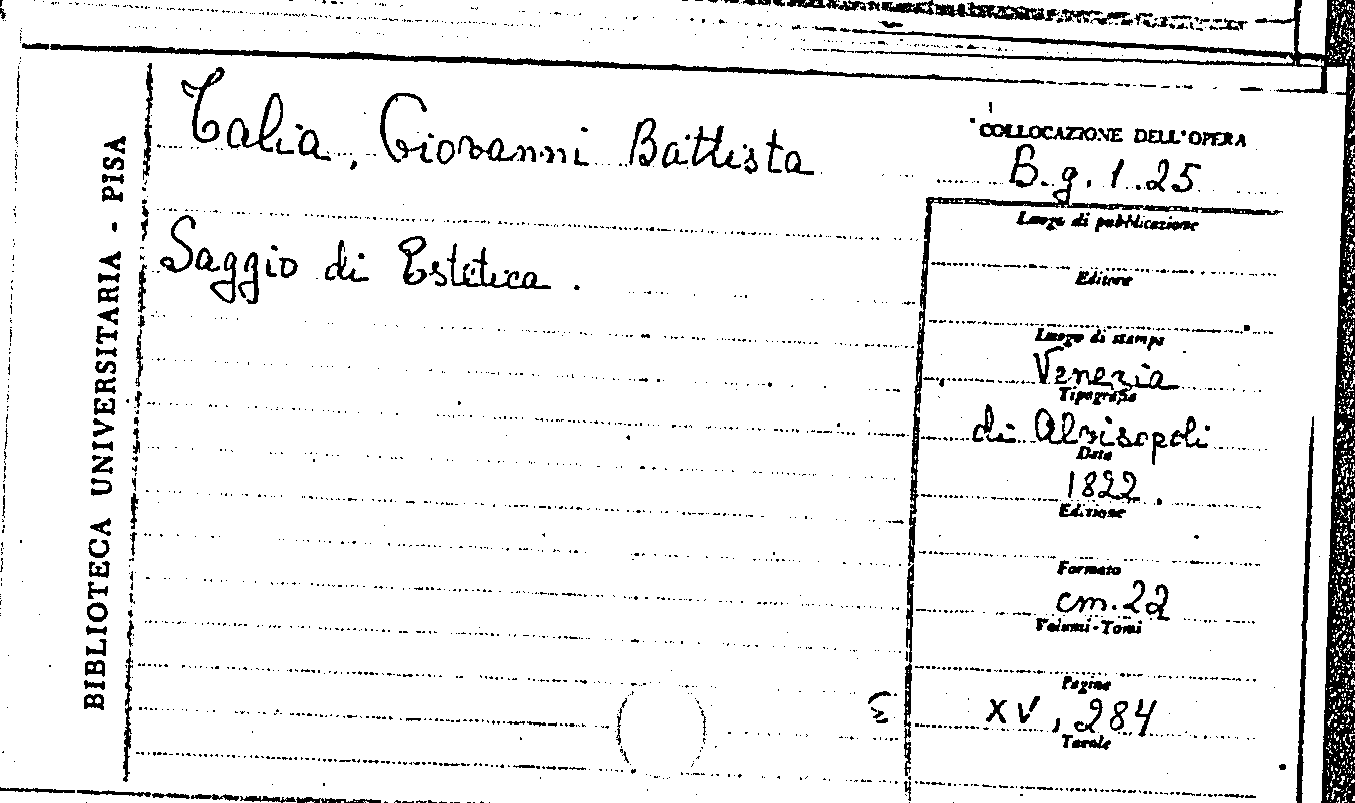 BIBLIOTECA UNIVERSITARIA - PISA
Talia, Giovanni Battista
Saggio di Estetica.
COLLOCAZIONE DELL'OPERA
B.g.1.25
Luogo di pubblicazione
Editore
Luogo di stampa
Venezia
Tipografia
di Alvisopoli
Data
1822.
Edizione
Formato
cm.22
Volumi-Tomi
Pagine
XV, 284
Tavole